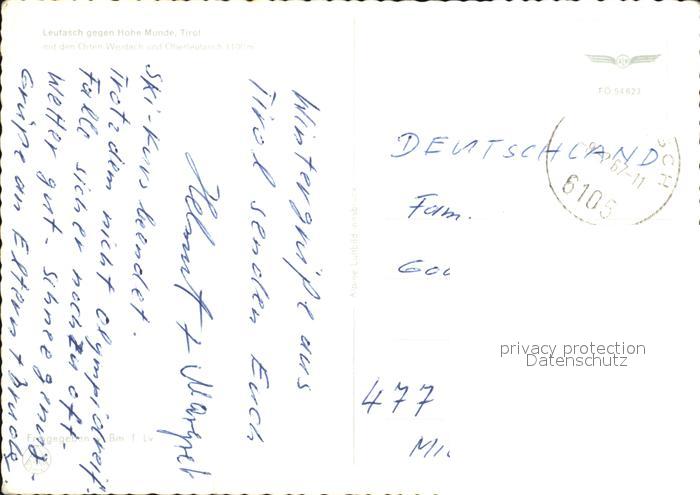 Leutasch gegen Hohe Munde, Tirol
mit den Orten Weidach und Oberleutasch 1100 m
Wintergrüße aus
Tirol senden Euch
Helmut +
Ski-Kurs beendet.
Trotzdem nicht olympiareif.
Falle sicher noch zu oft.
Wetter gut - Schnee genug.
Grüße an Eltern + Bruder
Freigegeben v. Bm f. Lv
Alpine Luftbild Innsbruck
FO 54623
6105
DEUTSCHLAND
Fam.
477
privacy protection
Datenschutz